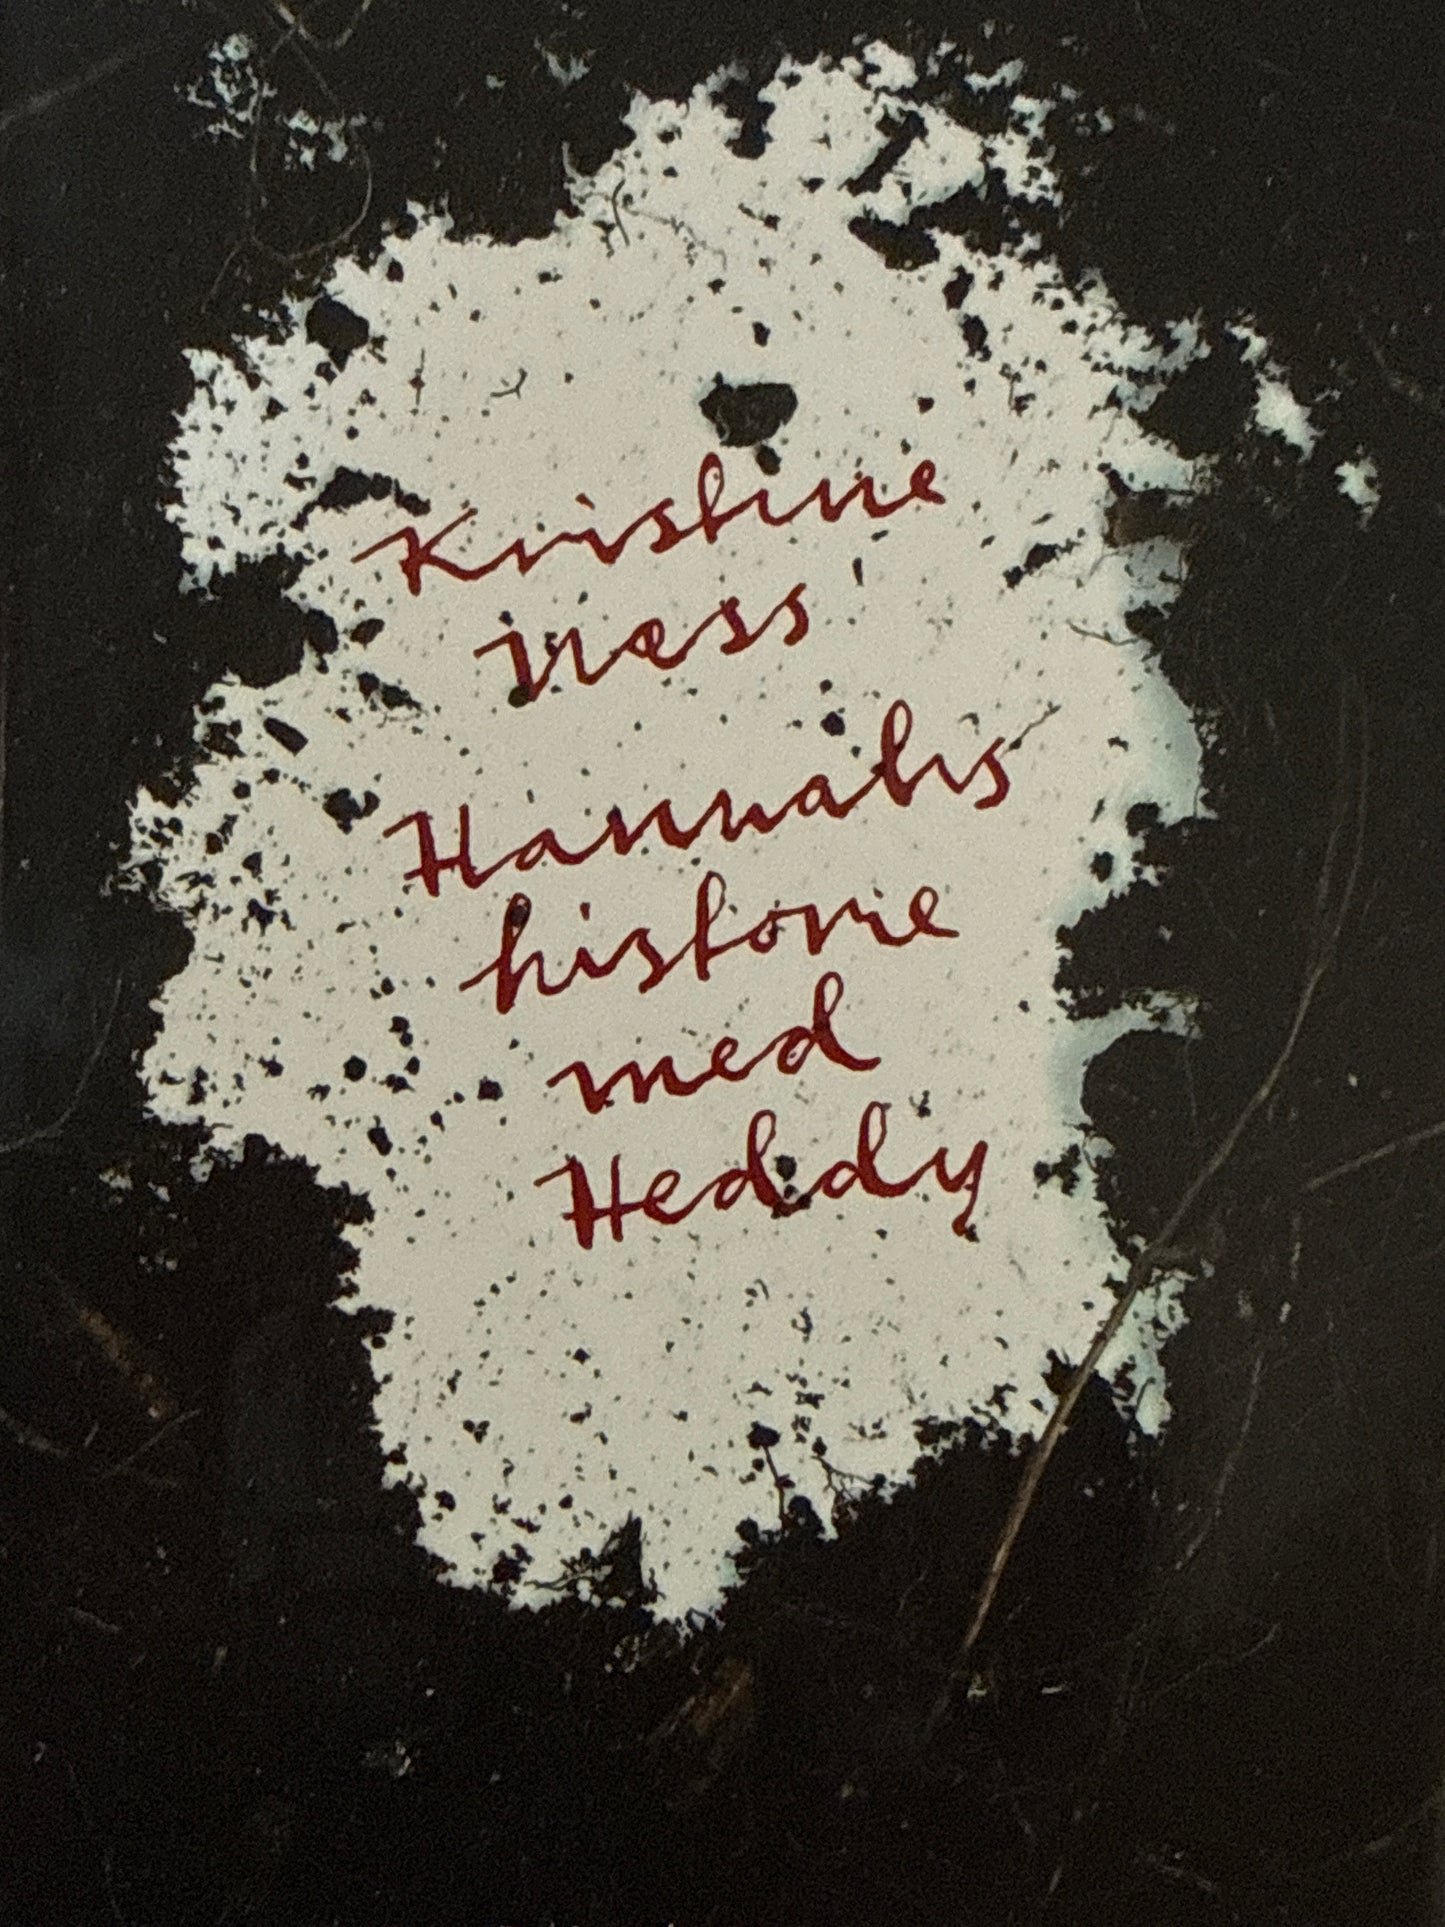 Kristine
Næss
Hannahs
historie
med
Heddy